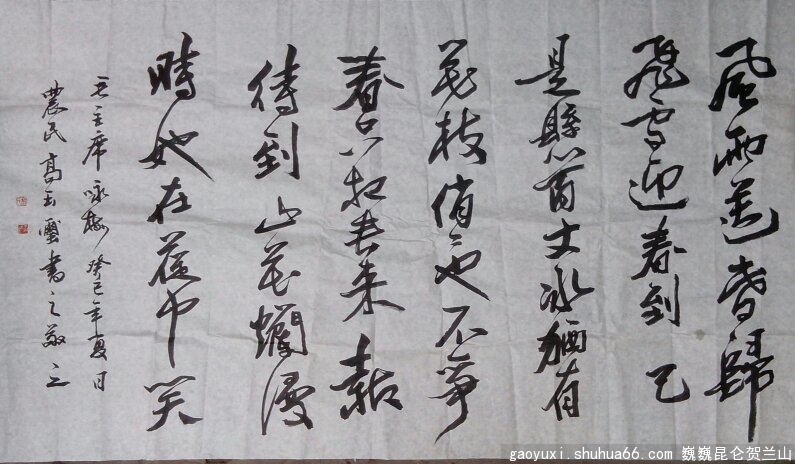 風雨送春歸
飛雪迎春到 已
是懸百丈冰猶有
花枝俏也不爭
春只把春來報
待到山花爛漫
時她在叢中笑
毛主席咏梅 癸巳年夏日
農民高玉璽書之敬之
gaoyuxi.shuhua66.com 巍巍昆仑贺兰山